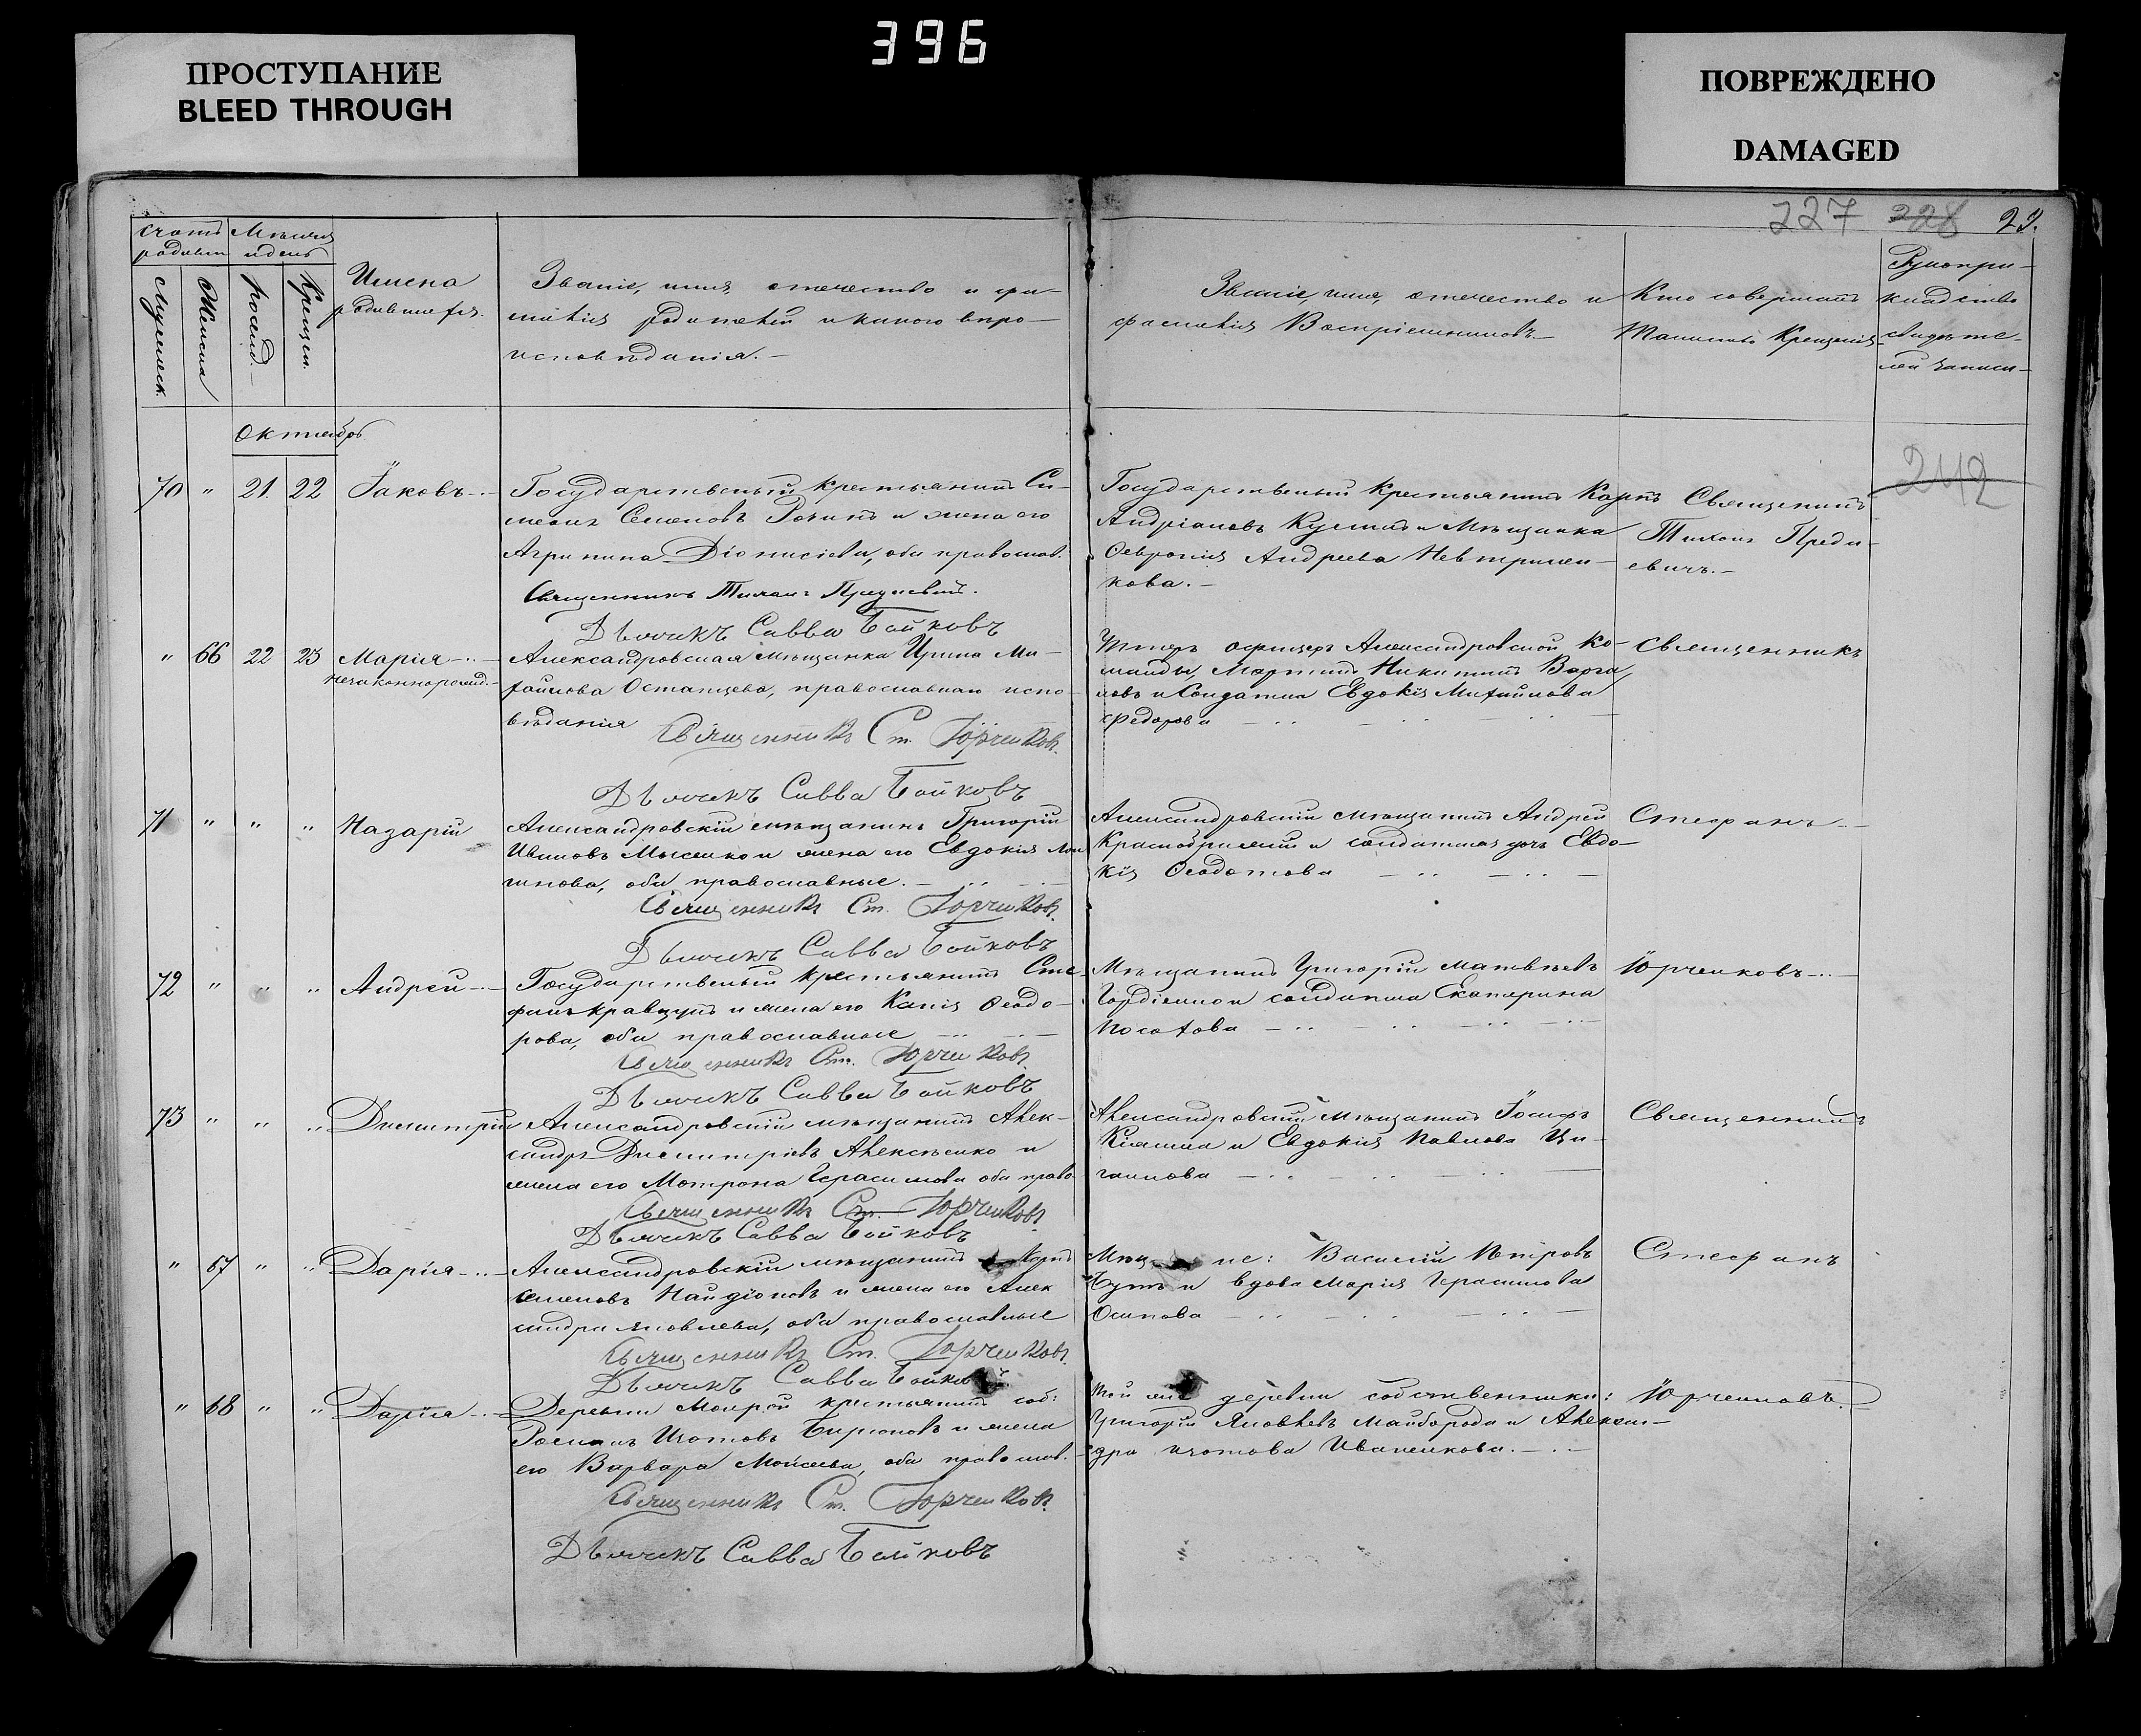 396
ПРОСТУПАНИЕ
BLEED THROUGH
ПОВРЕЖДЕНО
DAMAGED
227 228 29.
Счотъ родивш
Мѣсяцъ и день
Мужеск.
Женска
рожд.
Крещен.
Имена
родившихся.
Званіе, имя, отечество и фа-
милія родителей и какого вѣро-
исповѣданія.
Званіе, имя, отечество и
фамилія Воспріемниковъ.
Кто совершалъ
Таинство Крещенія
Рукопри-
кладство
свидѣте-
лей записи
Октябрь
242
70 " 21. 22 Іаковъ
Государственый крестьянинъ Си-
меонъ Семеновъ и жена его
Агрипина Діонисіева, оба православ.
Священникъ Тихонъ
Дьячекъ Савва Бойковъ
Государственый Крестьянинъ Карпъ
Андріановъ и Мѣщанка
Февронія Андреева
кова.
Священникъ
Тихонъ Преди-
евичъ.
" 66 22 23 Марія
незаконорожд.
Александровская мѣщанка Ирина Ми-
хайлова Остапцева, православнаго испо-
вѣданія
Священникъ Ст. Юрченковъ.
Дьячекъ Савва Бойковъ
Унтеръ офицеръ Александровской Ко-
манды, Мартинъ Никитинъ Варга
новъ и Солдатка Евдокія Михайлова
Федорова
Священникъ
71 " " " Назарій
Александровскій мѣщанинъ Григорій
Ивановъ и жена его Евдокія Лон
гинова, оба православные.
Священникъ Ст. Юрченковъ.
Дьячекъ Савва Бойковъ
Александровскій мѣщанинъ Андрей
и солдатская дочь Евдо-
кія Феодотова
Стефанъ
72 " " " Андрей
Государственый крестьянинъ Сте-
фанъ Кравцунъ и жена его Ксенія Феодо-
рова, оба православные
Священникъ Ст. Юрченковъ.
Дьячекъ Савва Бойковъ
Мѣщанинъ Григорій Матвѣевъ
Гордіенко и солдатка Екатерина
Носохова
Юрченковъ
73 " " " Димитрій
Александровскій мѣщанинъ Алек-
сандръ Димитріевъ Алексѣенко и
жена его Мотрона Герасимова оба право
Священникъ Ст. Юрченковъ
Дьячекъ Савва Бойковъ
Александровскій мѣщанинъ Іосифъ
Кіяшка и Евдокія Павлова Цы-
ганкова
Священникъ
" 67 " " Дарія
Александровскій мѣщанинъ Карпъ
Семеновъ Найдіоновъ и жена его Алек
сандра Яковлева, оба православные
Священникъ Ст. Юрченковъ.
Дьячекъ Савва Бойковъ
Василій Петровъ
и вдова Марія Герасимова
Осипова
Стефанъ
" 68 " " Дарія
Деревни Мокрой крестьянинъ соб:
Изотовъ Бирюковъ и жена
его Варвара Мойсеева, оба православ.
Священникъ Ст. Юрченковъ.
Дьячекъ Савва Бойковъ
Той же деревни собственники:
Григорій Яковлевъ Майборода и Алексан-
дра Изотова Иваненкова.
Юрченковъ.